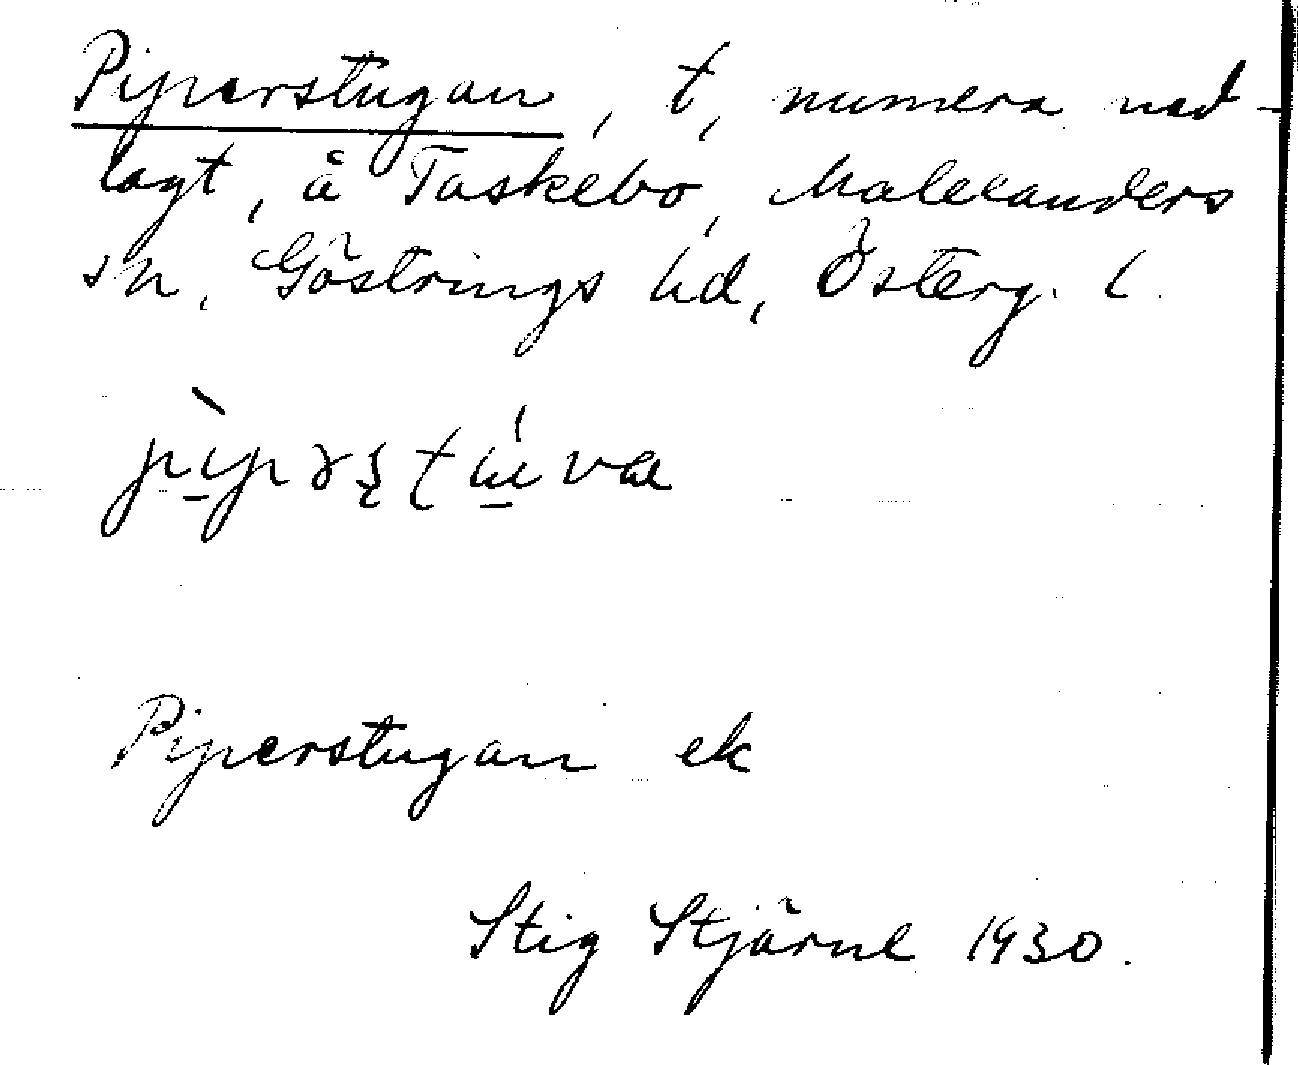 Piperstugan, t, numera ned-
lagt, å Taskebo, Malexanders
sn, Göstrings hd, Österg. l.
pìpərstúva
Piperstugan ek
Stig Stjärne 1930.